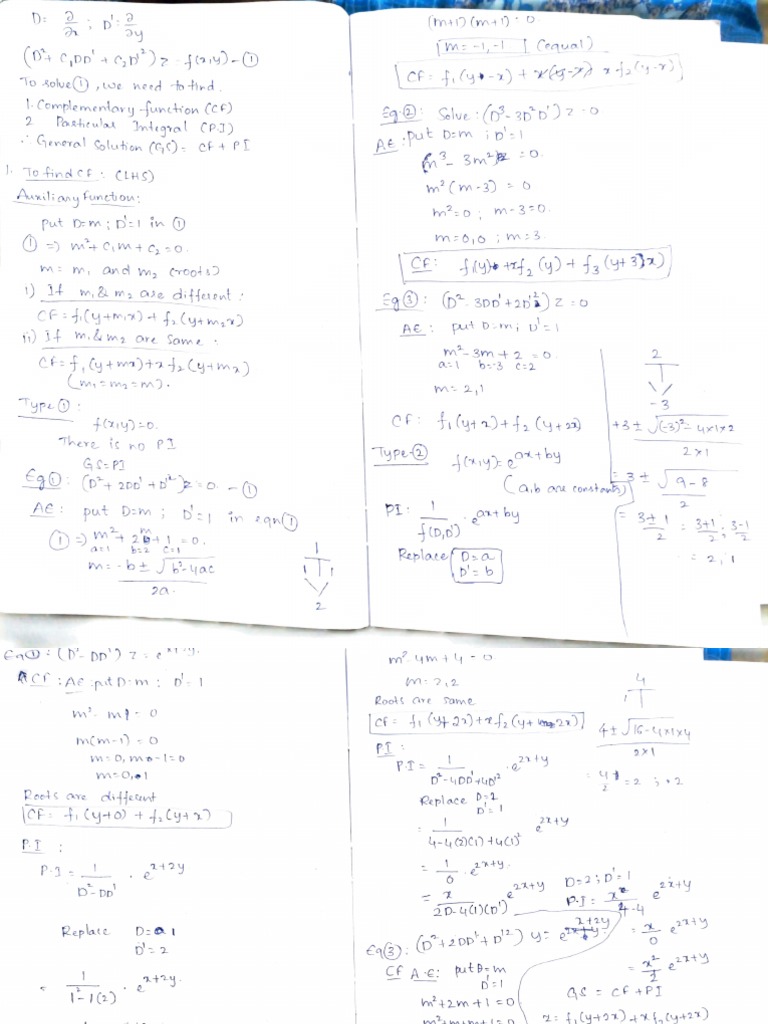 D = ∂/∂x ; D' = ∂/∂y
(D² + C₁DD' + C₂D'²) z = f(x,y) - ①
To solve ①, we need to find.
1. Complementary function (CF)
2 Particular Integral (P.I)
∴ General Solution (GS) = CF + PI
1. To find CF : (LHS)
Auxiliary Function:
put D=m ; D'=1 in ①
① => m² + C₁m + C₂ = 0.
m = m₁ and m₂ (roots)
i) If m₁ & m₂ are different :
CF = f₁(y+m₁x) + f₂(y+m₂x)
ii) If m₁ & m₂ are same .
CF = f₁(y+mx) + x f₂(y+mx)
(m₁ = m₂ = m).
Type ① :
f(x,y) = 0.
There is no PI
GS = PI
Eg ① : (D² + 2DD' + D'²) z = 0. - ①
AE : put D=m ; D'=1 in eqn ①
① => m² + 2m + 1 = 0.
a=1 b=2 c=1
m = -b ± √b²-4ac
2a
1
1 1
2
(m+1) (m+1) = 0.
m = -1, -1 (equal)
CF = f₁(y-x) + x f₂(y-x)
Eg ② : Solve : (D³ - 3D²D') z = 0
AE : put D=m ; D'=1
m³ - 3m² = 0.
m² (m-3) = 0
m² = 0 ; m-3 = 0.
m = 0, 0 ; m = 3.
CF : f₁(y) + xf₂(y) + f₃(y+3x)
Eg ③ : (D² - 3DD' + 2D'²) z = 0
AE : put D=m ; D'=1
m² - 3m + 2 = 0.
a=1 b=-3 c=2
m = 2, 1
CF : f₁(y+x) + f₂(y+2x)
2
-3
+3 ± √(-3)² - 4×1×2
2×1
= 3 ± √9-8
2
= 3±1/2 = 3+1/2 ; 3-1/2
= 2, 1
Type-②
f(x,y) = e^ax+by
(a,b are constants)
PI : 1/f(D,D') · e^ax+by
Replace D=a
D'=b
Eg ① : (D² - DD') z = e
CF : AE : put D=m ; D'=1
m² - m = 0
m(m-1) = 0
m=0, m-1=0
m=0, 1
Roots are different
CF = f₁(y+0) + f₂(y+x)
P.I :
P.I = 1/D²-DD' · e^x+2y
Replace D=1
D'=2
= 1/1²-1(2) · e^x+2y.
m² - 4m + 4 = 0
m = 2, 2
Roots are same
CF = f₁(y+2x) + xf₂(y+2x)
4
4 ± √16-4×1×4
2×1
= 2 ; 2
PI :
P.I = 1/D²-4DD'+4D'² · e^2x+y
Replace D=2
D'=1
= 1/4-4(2)(1)+4(1)² e^2x+y
= 1/0 · e^2x+y.
= x/2D-4(1)(D') e^2x+y
D=2 ; D'=1
P.I = x/4-4 e^2x+y
= x/0 e^2x+y
= x²/2 e^2x+y
GS = CF + PI
z = f₁(y+2x) + xf₂(y+2x)
Eg ③ : (D² + 2DD' + D'²) y = e^x+2y
CF A.E : put D=m
D'=1
m² + 2m + 1 = 0
m² + m + m + 1 = 0